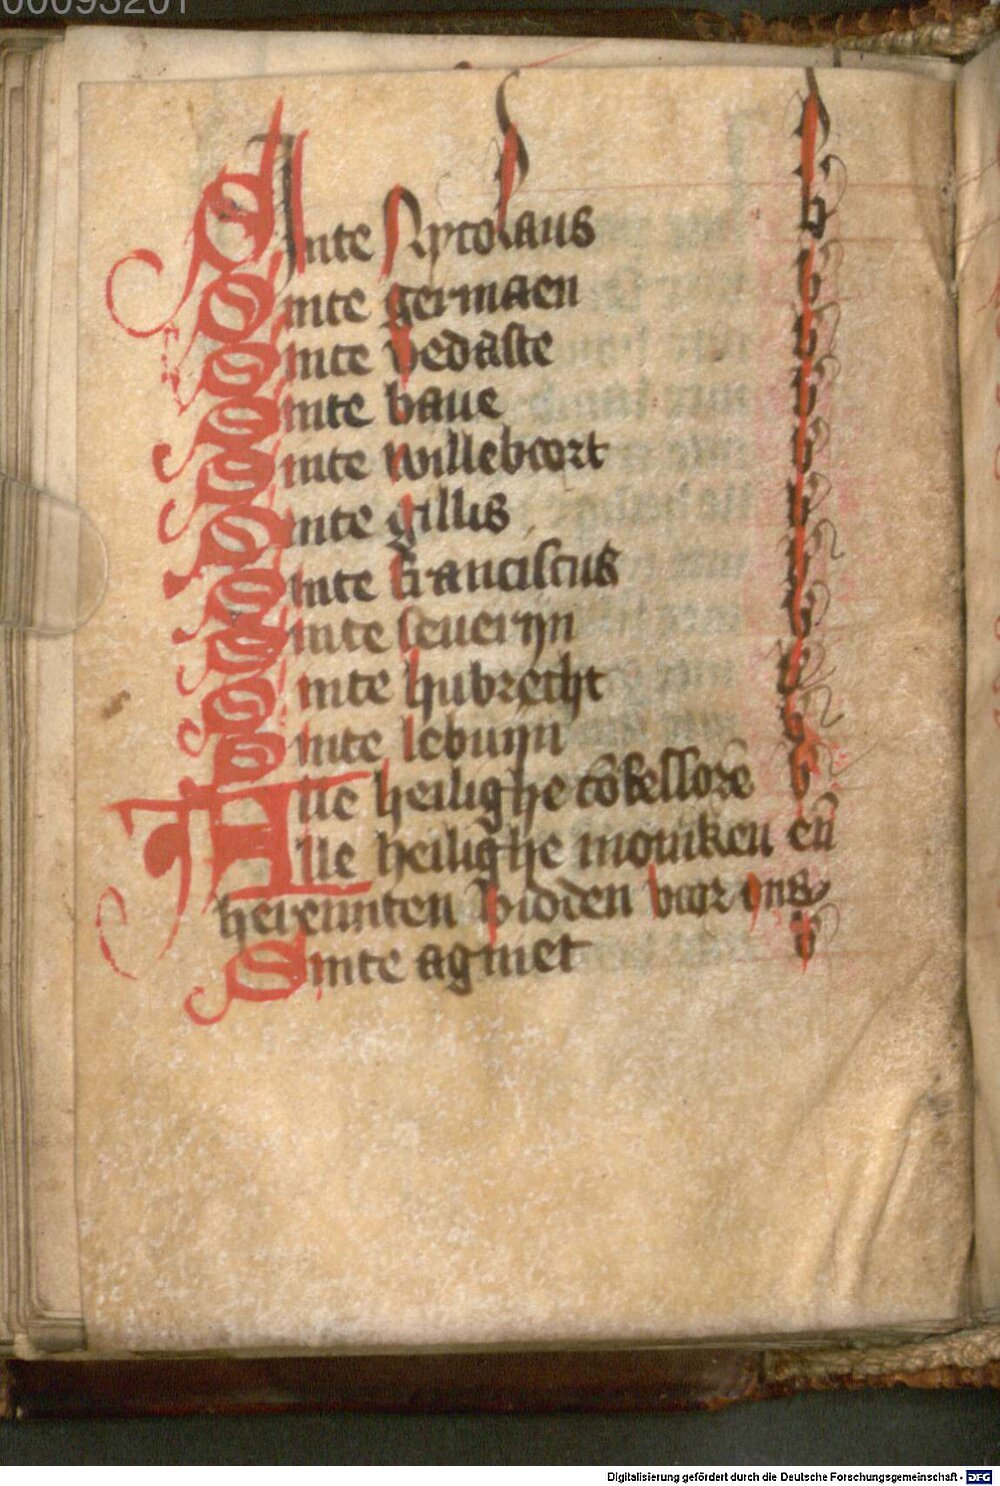 00093201
Sinte Nycolaus b
Sinte germaen b
Sinte vedaste b
Sinte baue b
Sinte willeboort b
Sinte gillis b
Sinte franciscus b
Sinte seueryn b
Sinte hubrecht b
Sinte lebuyn b
Alle heilighe cōfessore b
Alle heilighe moniken eñ
heremiten bidden voor ons
Sinte agniet b
Digitalisierung gefördert durch die Deutsche Forschungsgemeinschaft - DFG